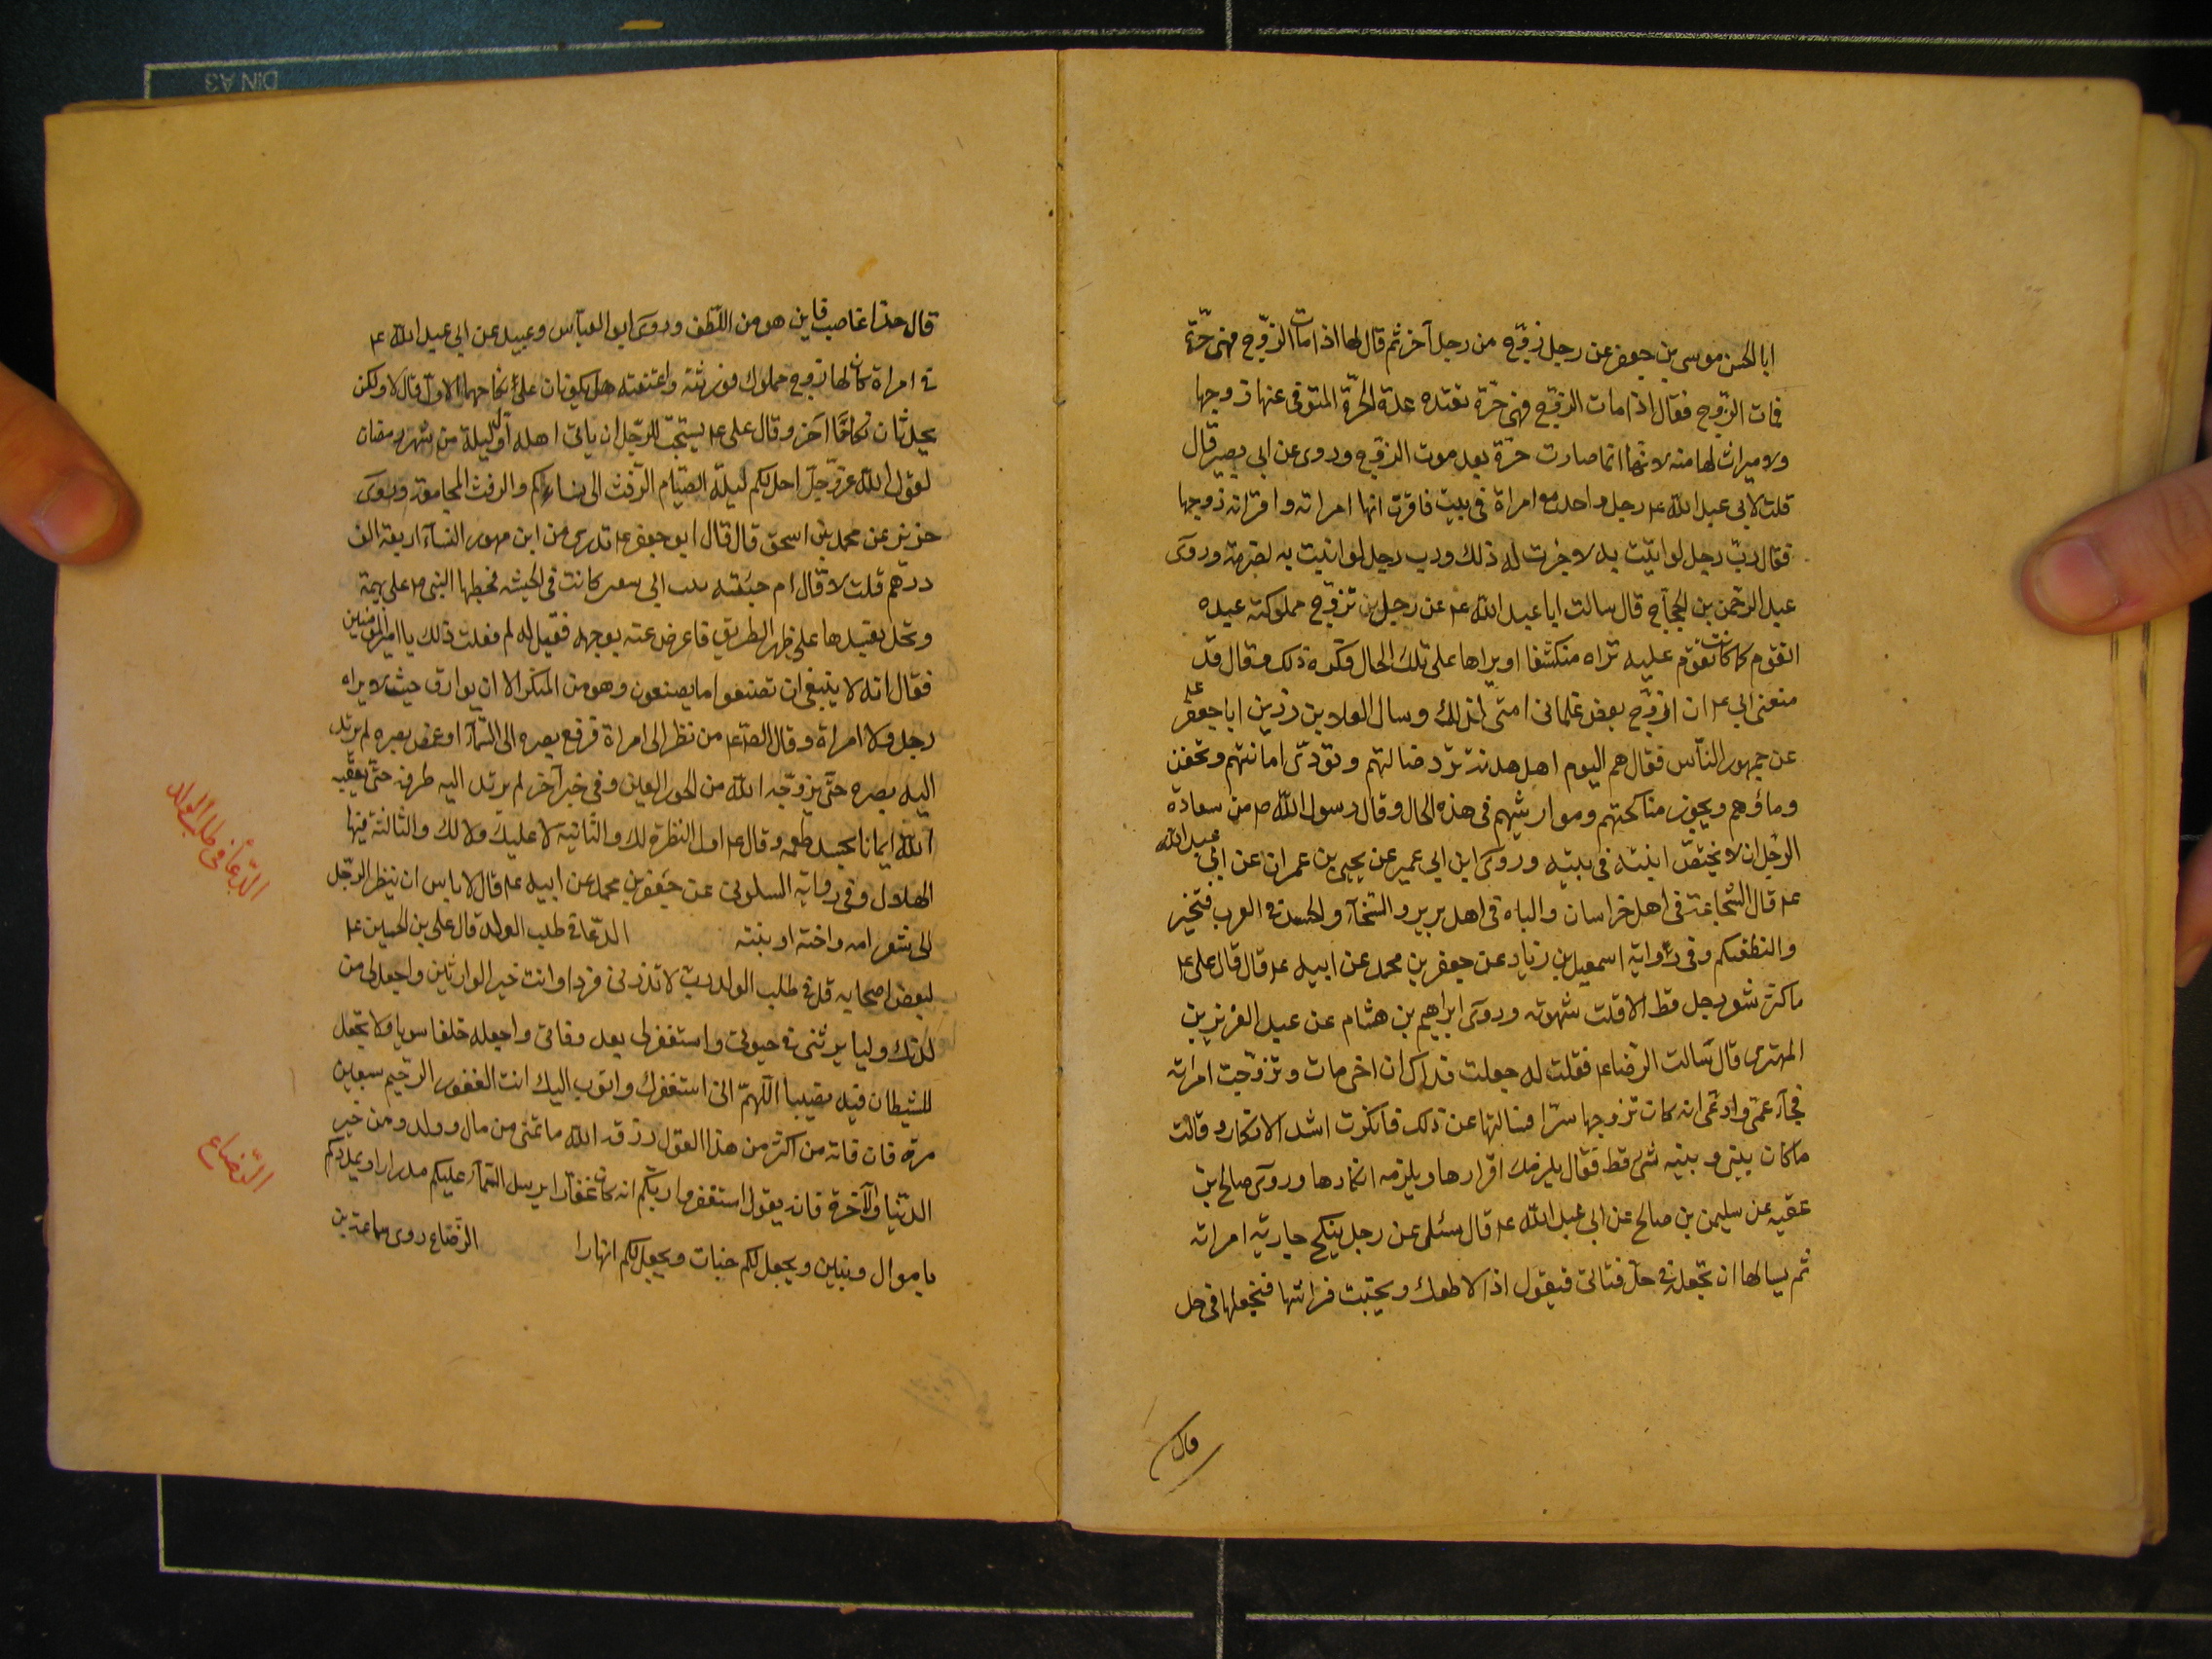 ابا الحسن موسى بن جعفر عن رجل زوّج من رجل آخر ثم قال لها اذا مات الزّوج فهى حرّة
فمات الزّوج فقال اذا مات الزوّج فهى حرّة تعتده عدة الحرّة المتوفى عنها زوجها
ولا ميراث لها منه لانها انما صارت حرّة بعد موت الزوّج وروى عن ابى بصير قال
قلت لابى عبد الله ع رجل واحد مع امراة فى بيت فاقرّت انها امراته واقرانه زوجها
فقال ربّ رجل لو اتيت به لاجزت له ذلك ورب رجل لو اتيت به لضربته وروى
عبد الرّحمن بن الحجّاج قال سالت ابا عبد الله ع عن رجل تزوج مملوكته عبده
اتقوم كما كانت تقوم عليه تراه منكشفا او يراها على تلك الحال فكره ذلك وقال قد
منعنى ابى ع ان ازوّج بعض غلمانى امتى لذلك وسال العلا بن رزين ابا جعفر ع
عن جمهور النّاس فقال هم اليوم اهل هدنة ترد ضالتهم وتؤدّى امانتهم وتحقن
دماؤهم ويجوز مناكحتهم ومواريثهم فى هذه الحال وقال رسول الله ص من سعادة
الرّجل ان لا تحيض ابنته فى بيته وروى ابن ابى عمير عن يحيى بن عمران عن ابى عبد الله
ع قال الشّجاعة فى اهل خراسان والباه فى اهل بربر والسّخآء والحسد فى العرب فتخير
والنطفكم وفى رواية اسمعيل بن زياد عن جعفر بن محمد عن ابيه ع قال قال على ع
ما كثر شعر رجل قط الا قلت شهوته وروى ابراهيم بن هشام عن عبد العزيز بن
المهتدى قال سالت الرّضا ع فقلت له جعلت فداك ان اخى مات وتزوّجت امراته
فجآء عمّى وادّعى انه كان تزوجها سرّا فسالتها عن ذلك فانكرت اشد الانكار وقالت
ما كان بينى وبينه شىء قط فقال يلزمك اقرارها ويلزمه انكارها وروى صالح بن
عقبه عن سليمن بن صالح عن ابى عبد الله ع قال سئل عن رجل ينكح جارية امراته
ثم يسالها ان تجعله فى حلّ فتابى فيقول اذا لاطلقك ويجتنب فراشها فتجعلها فى حل
قال
قال هذا غاصب فاين هو من اللّطف وروى ابو العبّاس وعبيد عن ابى عبد الله ع
فى امراة كان لها زوج مملوك فورثته واعتقته هل يكونان على نكاحهما الاوّل قال لا ولكن
يجددان نكاحًا آخر وقال على ع يستحبّ للرّجل ان ياتى اهله اوّل ليلة من شهر رمضان
لقول الله عزّ وجلّ احل لكم ليلة الصّيام الرّفث الى نسائكم والرفث المجامعة وروى
حريز عن محمد بن اسحق قال قال ابو جعفر ع تدرى من اين مهور النسآء اربعة الف
درهم قلت لا قال ام حبيبة بنت ابى سفين كانت فى الحبشه فخطبها النبى ص على بهيمة
وتحل يفتيدها على ظهر الطريق فاعرض عنه بوجهه فقيل له لم فعلت ذلك يا امير المؤمنين
فقال انه لا ينبغى ان تصنعوا ما يصنعون وهو من المنكر الا ان يوارى حيث لا يراه
رجل ولا امراة وقال الصّ ع من نظر الى امراة فرفع بصره الى السّمآء او غمض بصره لم يرتد
اليه بصره حتّى يزوّجه الله من الحور العين وفى خبر آخر لم يرتد اليه طرفه حتّى يعقبه
الله ايمانا يجد طعمه وقال ع اول النظرة لك والثّانية لا عليك ولا لك والثالثة فيها
الهلاك وفى رواية السكونى عن جعفر بن محمد عن ابيه ع قال لا باس ان ينظر الرّجل
الى شعر امه واخته او بنته الدّعا فى طلب الولد قال على بن الحسين ع
لبعض اصحابه قل فى طلب الولد ربّ لا تذرنى فردا وانت خير الوارثين واجعل لى من
لدنك وليا يرثنى فى حيوتى واستغفر لى بعد وفاتى واجعله خلفا سويا ولا تجعل
للشيطان فيه نصيبا اللّهمّ انى استغفرك واتوب اليك انت الغفور الرّحيم سبعين
مرة فان فانه من اكثر من هذا القول رزقه الله ما تمنى من مال وولد ومن خير
الدّنيا والآخرة فانه يقول استغفروا ربكم انه كان غفّارا يرسل السّمآء عليكم مدرارا ويمددكم
باموال وبنين ويجعل لكم جنات ويجعل لكم انهارا الرّضاع روى سماعة بن
الدّعاء فى طلب الولد
الرّضاع